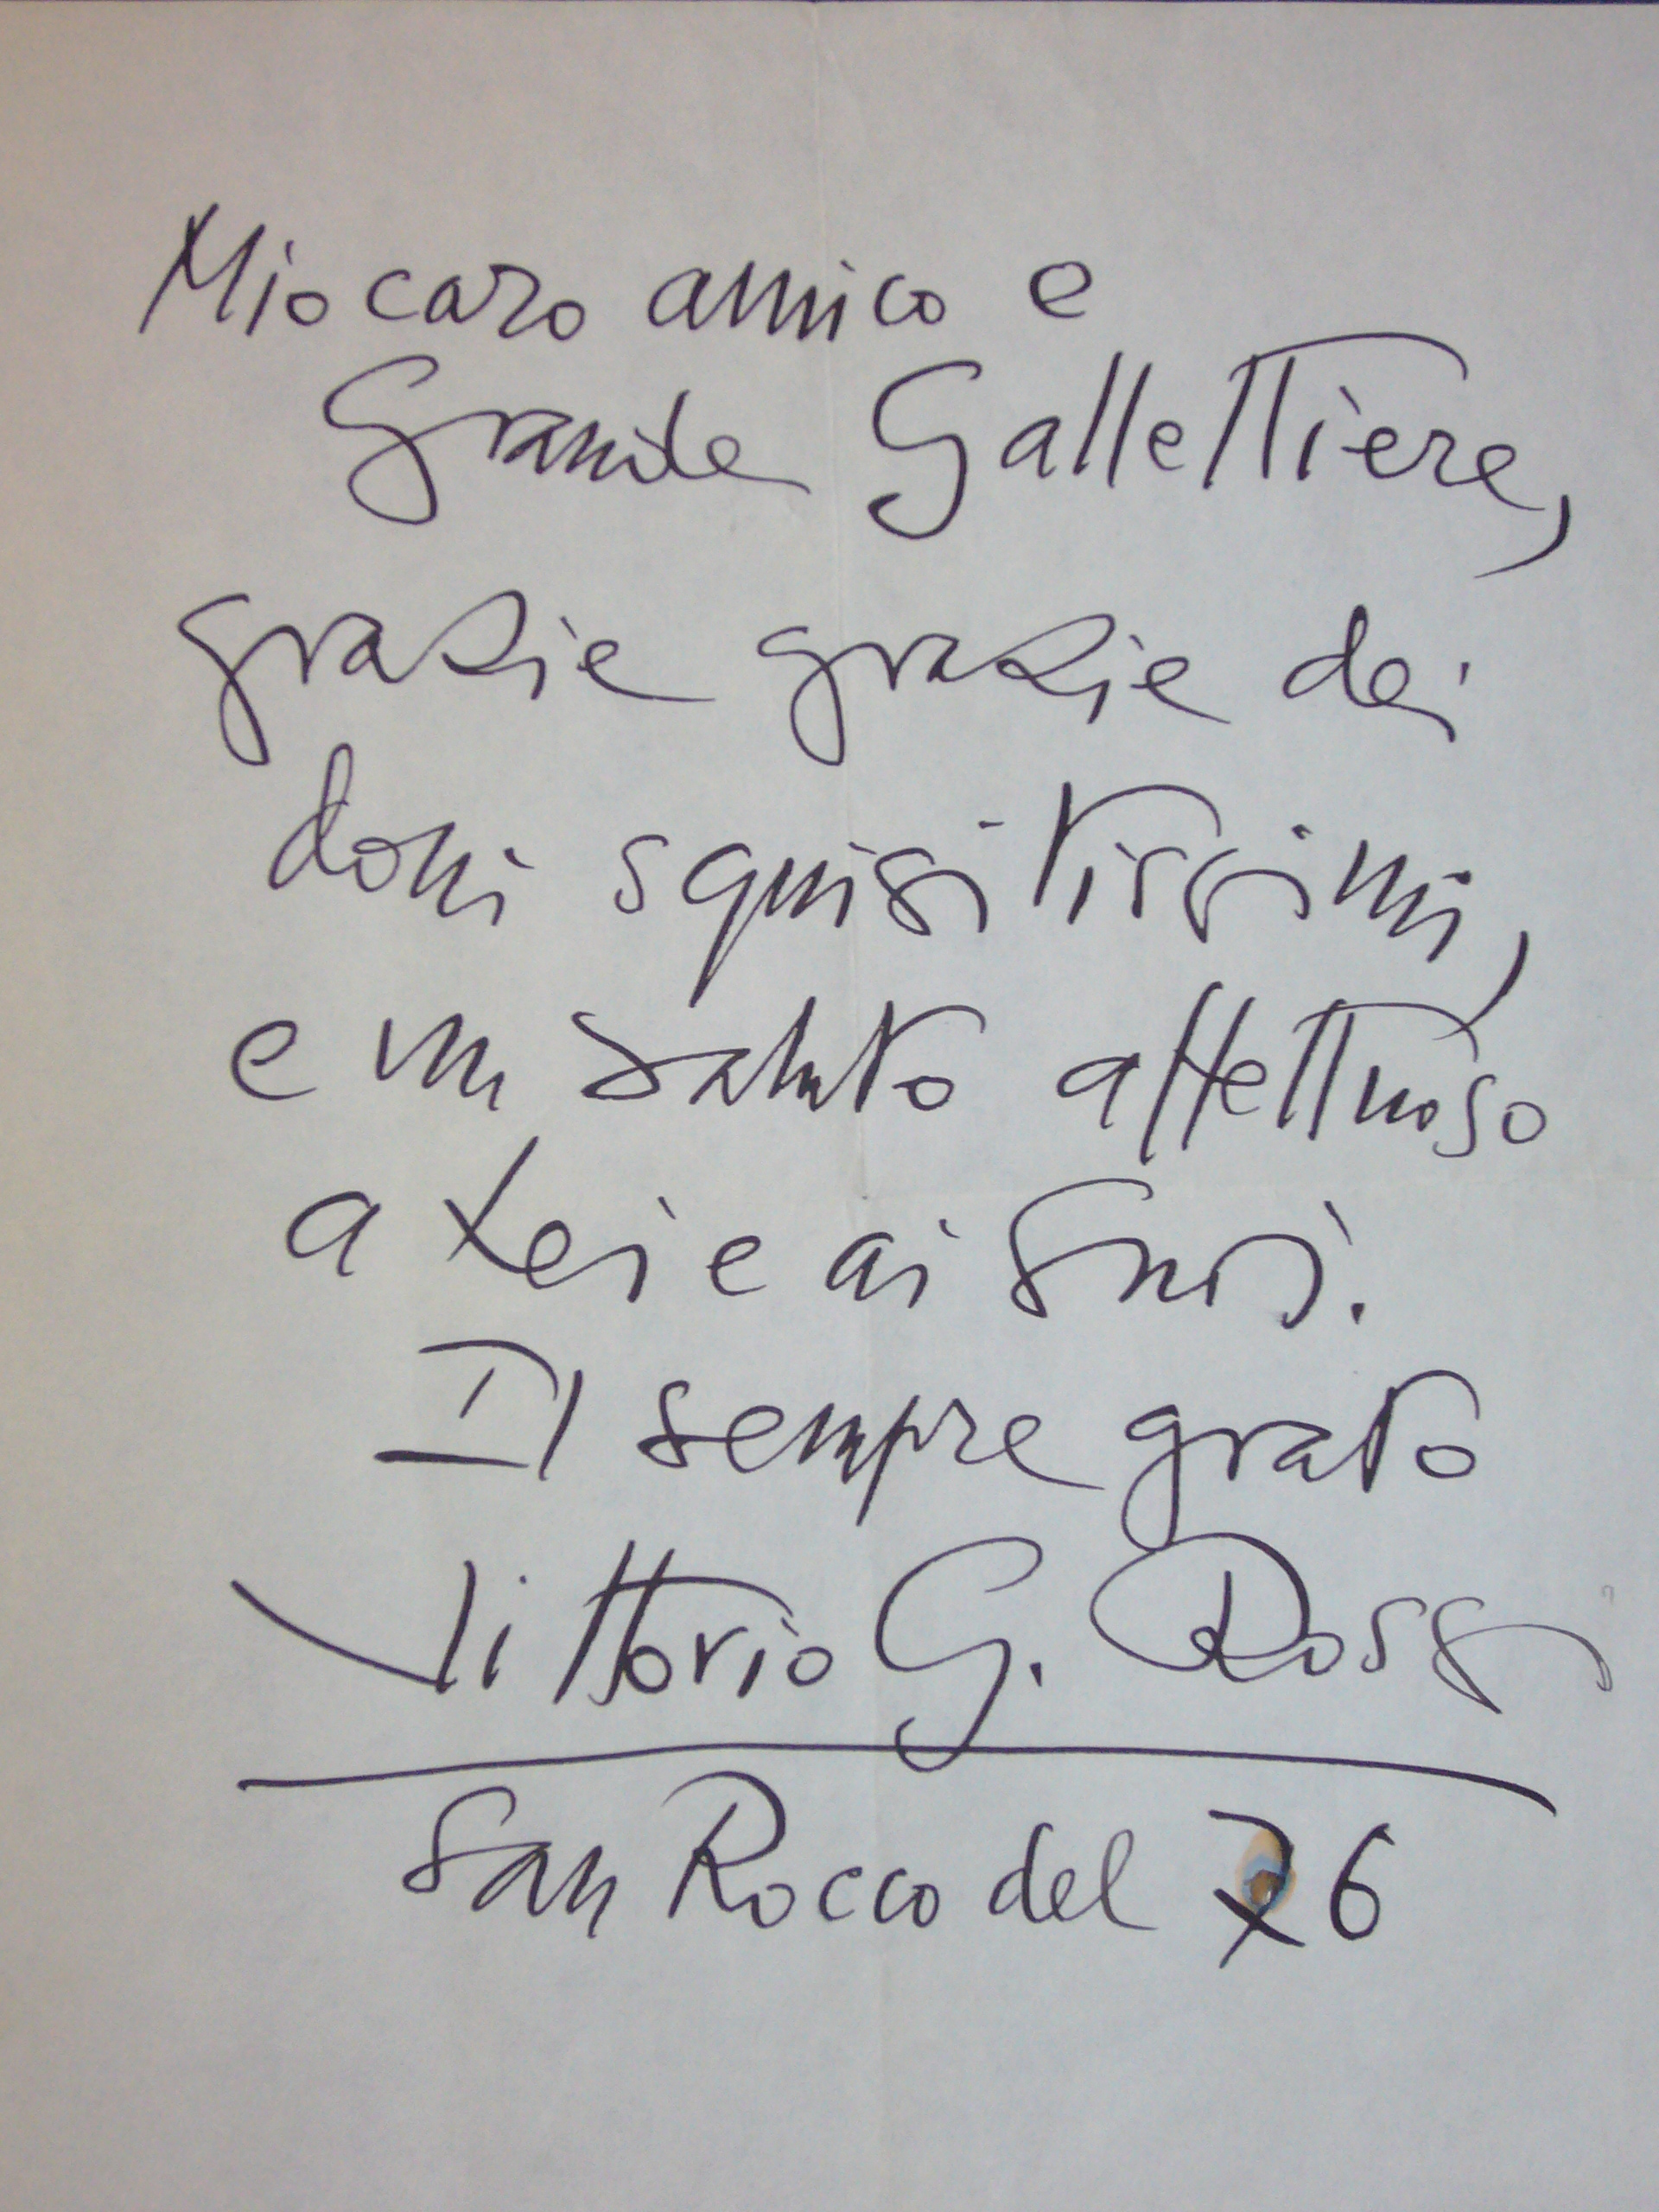 Mio caro amico e
Grande Gallettiere,
grazie grazie dei
doni squisitissimi,
e un saluto affettuoso
a Lei e ai Suoi.
Il sempre grato
Vittorio G. Rossi
San Rocco del 76